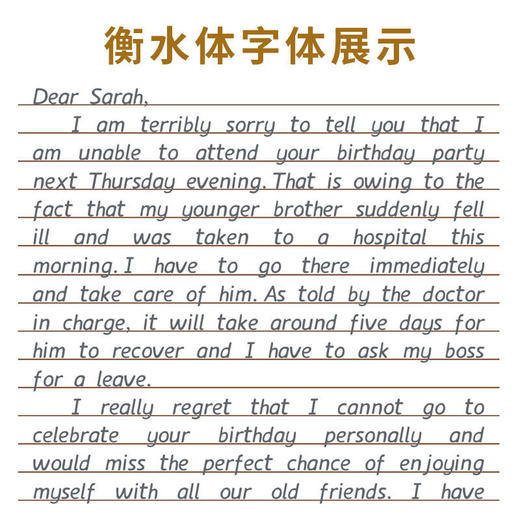 衡水体字体展示
Dear Sarah,
I am terribly sorry to tell you that I
am unable to attend your birthday party
next Thursday evening. That is owing to the
fact that my younger brother suddenly fell
ill and was taken to a hospital this
morning. I have to go there immediately
and take care of him. As told by the doctor
in charge, it will take around five days for
him to recover and I have to ask my boss
for a leave.
I really regret that I cannot go to
celebrate your birthday personally and
would miss the perfect chance of enjoying
myself with all our old friends. I have